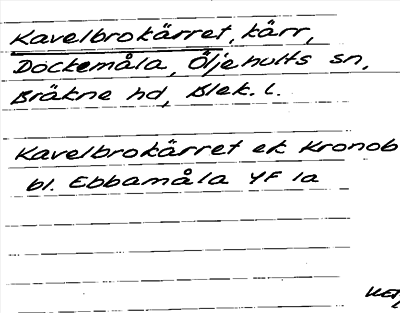 Kavelbrokärret, kärr,
Dockemåla, Öljehults sn,
Bräkne hd, Blek. l.
Kavelbrokärret ek Kronob
bl. Ebbamåla YF 1a